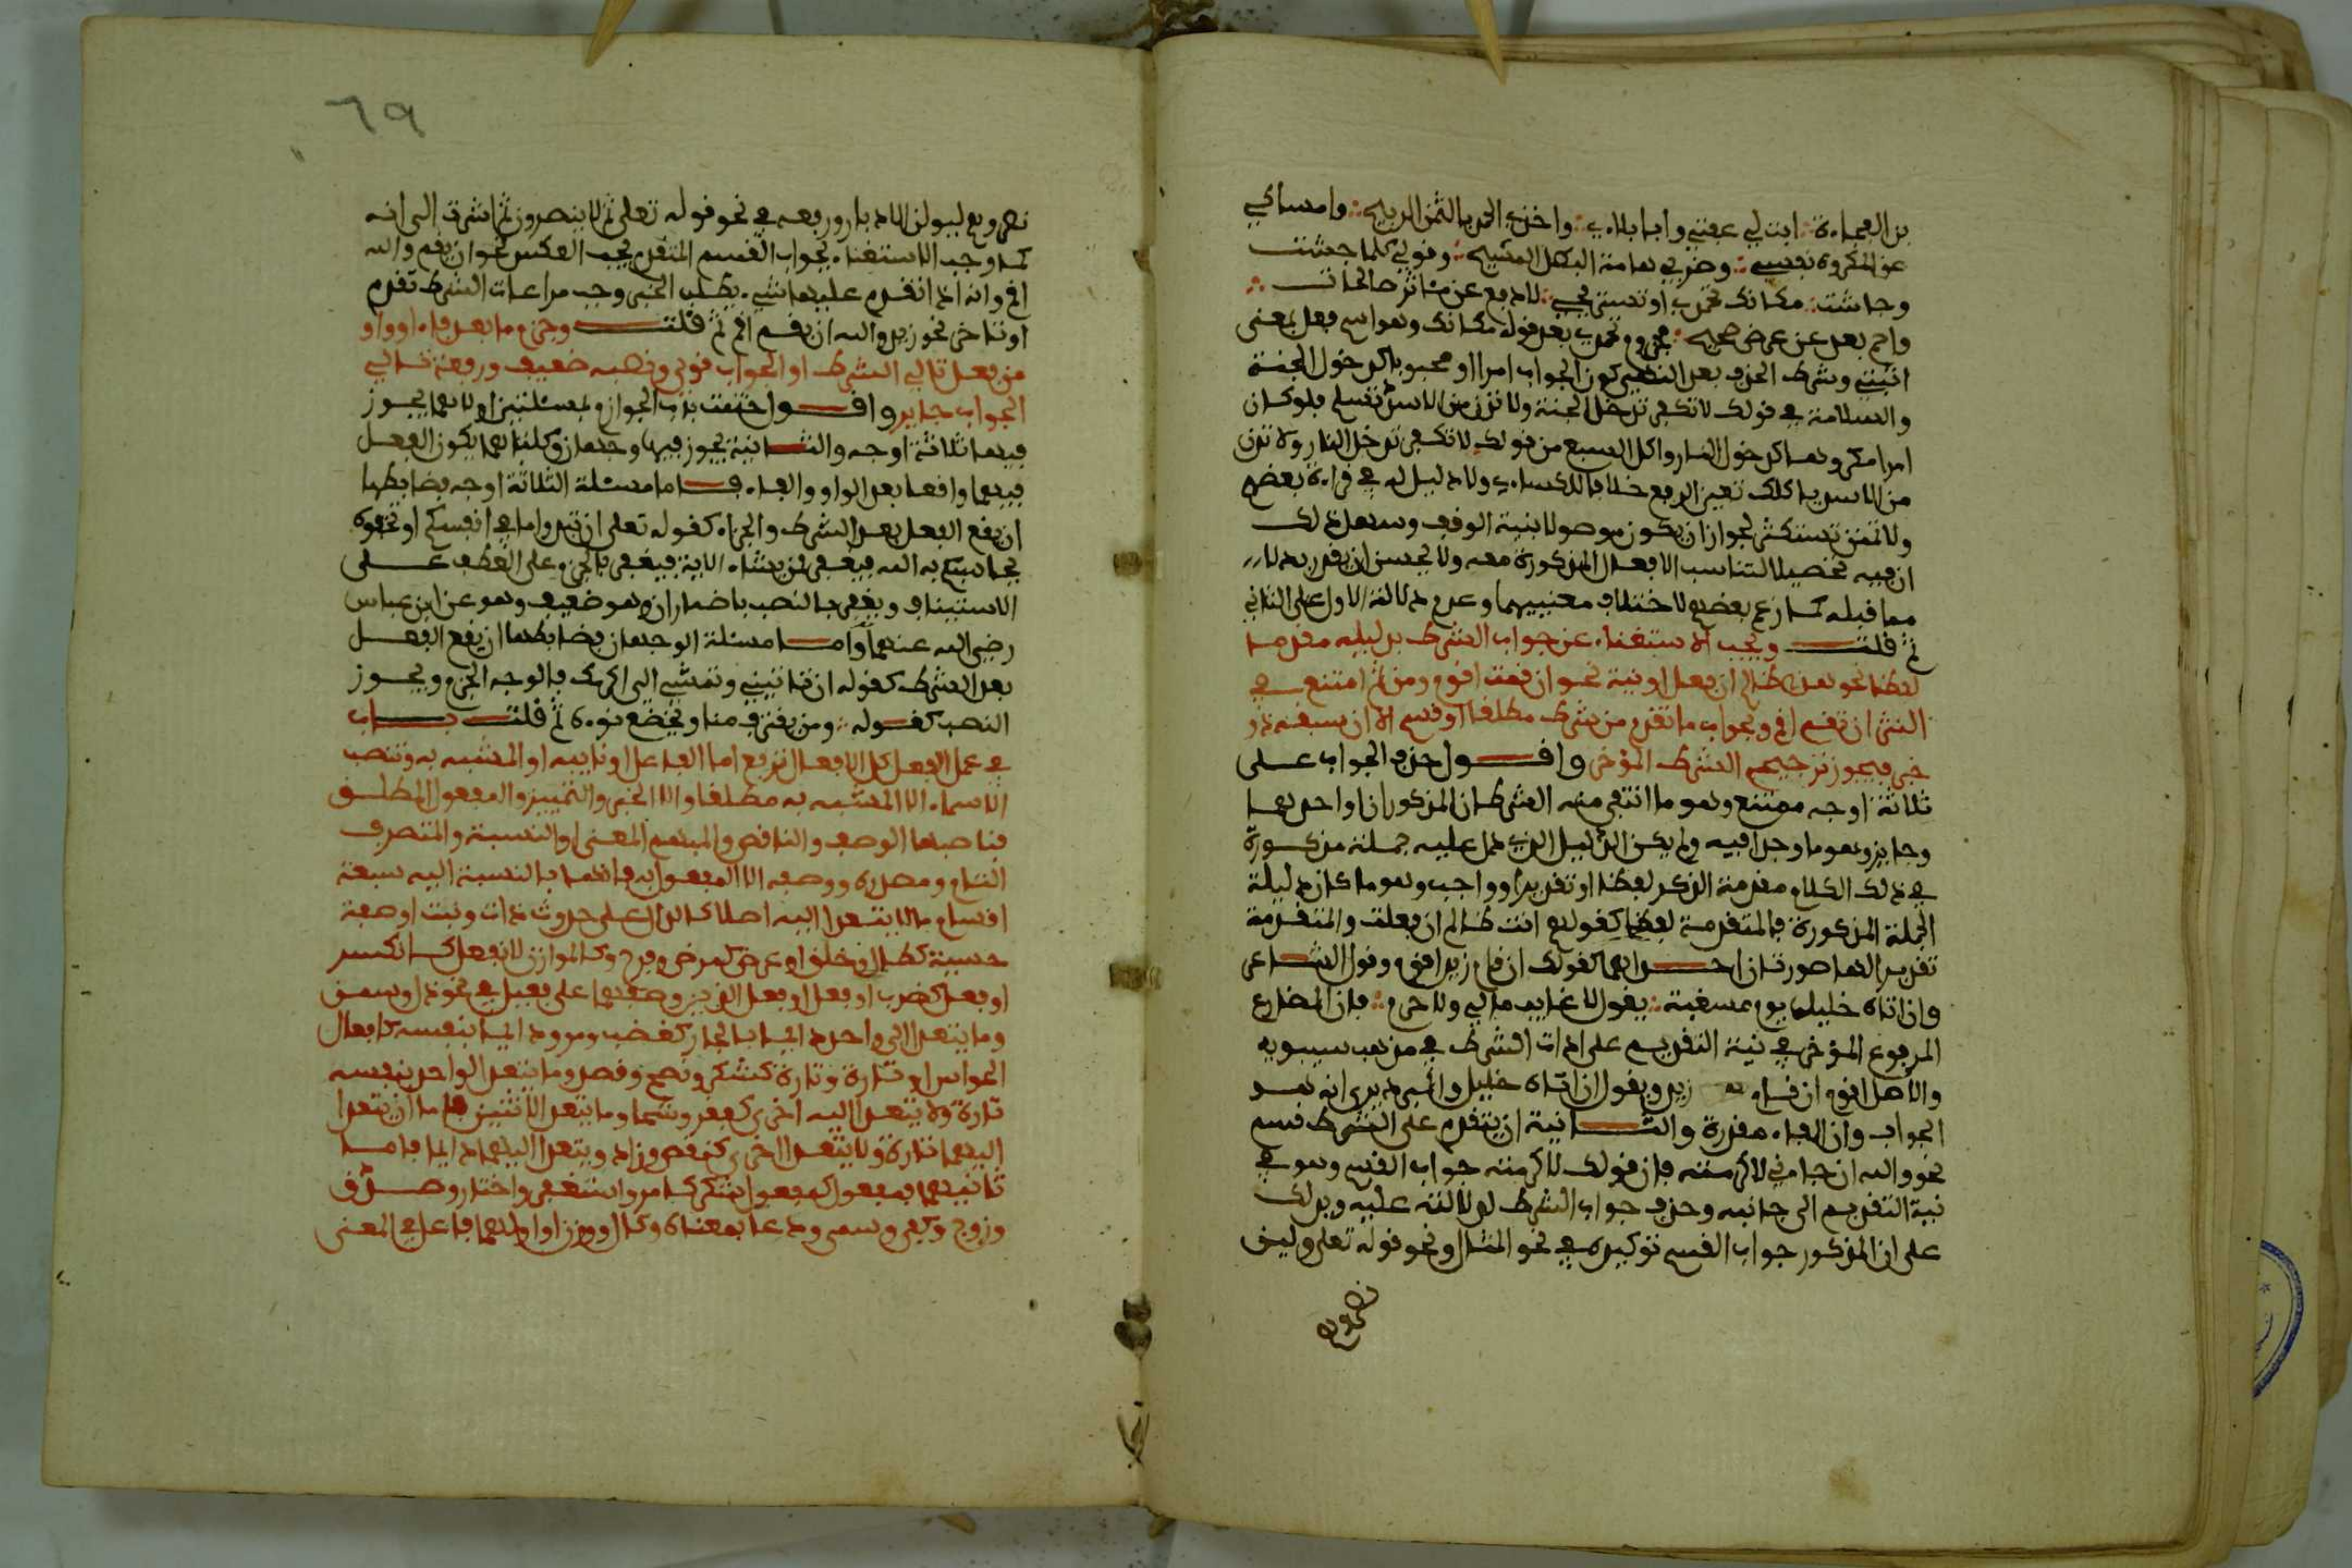 بن العجاءة: ابت لي عفتي وابا بلاءي: واخذي الحمد بالثمن الربيح: وامساكي
على المكروه نفسي: وضربي هامة البطل المشيح: وقولي كلما جشئت
وجاشت: مكانك تحمدي او تستريحي: لادفع عن مئاثر صالحات
واحم بعد عن عرض صحيح: فجزم تحمدي بعد قوله مكانك وهو اسم فعل بمعنى
اثبتي وشرط الجزم بعد النهي كون الجواب امرا محبوبا كدخول الجنة
والسلامة في قولك لا تكفر تدخل الجنة ولا تدن من الاسد تسلم فلو كان
امرا مكروها كدخول النار واكل السبع من قولك لا تكفر تدخل النار ولا تدن
من الاسد ياكلك تعين الرفع خلافا للكساءي ولا دليل له في قراءة بعضهم
ولا تمنن تستكثر لجواز ان يكون موصولا بنية الوقف وسهل ذلك
ان فيه تحصيلا لتناسب الافعال المذكورة معه ولا يحسن ان يقدر بدلا
مما قبله كما زعم بعضهم لاختلاف معنييهما وعدم دلالة الاول على الثاني
ثم قلت ويجب الاستغناء عن جواب الشرط بدليله مقدما
لفظا نحو هو ظالم ان فعل او نية نحو ان قمت اقوم ومن ثم امتنع في
النثر ان تقم اقوم وبجواب ما تقدم من شرط مطلقا او قسم الا ان سبقه ذو
خبر فيجوز ترجيح الشرط المؤخر واقول حذف الجواب على
ثلاثة اوجه ممتنع وهو ما انتفى منه الشرطان المذكوران او احدهما
وجايز وهو ما وجدا فيه ولم يكن الدليل الذي دل عليه جملة مذكورة
في ذلك الكلام مقدمة الذكر لفظا او تقديرا وواجب وهو ما كان دليله
الجملة المذكورة فالمتقدمة لفظا كقولهم انت ظالم ان فعلت والمتقدمة
تقديرا لها صورتان احداهما كقولك ان قام زيد اقوم وقول الشاعر
وان اتاه خليل يوم مسغبة: يقول لا غايب مالي ولا حرم: فان المضارع
المرفوع المؤخر في نية التقديم على ادات الشرط في مذهب سيبويه
والاصل اقوم ان قام زيد ويقول ان اتاه خليل والمبرد يرى انه هو
الجواب وان الفاء مقدرة والثانية ان يتقدم على الشرط قسم
نحو والله ان جاءني لاكرمنه فان قولك لاكرمنه جواب القسم وهو في
نية التقديم الى جانبه وحذف جواب الشرط لدلالته عليه ويدلك
على ان المذكور جواب القسم توكيده في نحو المثال ونحو قوله تعلى ولين
نصروهم
٦٩
نصروهم ليولن الادبار ورفعه في نحو قوله تعلى ثم لا ينصرون ثم اشرت الى انه
كما وجب الاستغناء بجواب القسم المتقدم يجب العكس نحو ان يقم والله
اقم وانه اذا تقدم عليهما شيء يطلب الخبر وجب مراعات الشرط تقدم
او تاخر نحو زيد والله ان يقم اقم ثم قلت وجزم ما بعد فاء او واو
من فعل تالي الشرط او الجواب قوي ونصبه ضعيف ورفعه تالي
الجواب جايز واقول ختمت باب الجوازم بمسئلتين اولاهما يجوز
فيها ثلاثة اوجه والثانية يجوز فيها وجهان وكلتاهما يكون الفعل
فيهما واقعا بعد الواو والفاء فاما مسئلة الثلاثة اوجه فضابطها
ان يقع الفعل بعد الشرط والجزاء كقوله تعلى ان تبدوا ما في انفسكم او تخفوه
يحاسبكم به الله فيغفر لمن يشاء الاية فيغفر بالجزم على العطف على
الاستيناف ويغفر بالنصب باضمار ان وهو ضعيف وهو عن ابن عباس
رضي الله عنهما واما مسئلة الوجهان فضابطها ان يقع الفعل
بعد الشرط كقوله ان تاتيني وتمشي الي اكرمك فالوجه الجزم ويجوز
النصب كقوله: ومن يقترب منا ويخضع نوه ثم قلت باب
في عمل الفعل كل الافعال ترفع اما الفاعل او نايبه او المشبه به وتنصب
الاسماء الا المشبه به مطلقا والا الخبر والتمييز والمفعول المطلق
فناصبها الوصف والناقص والمبهم المعنى او النسبة والمتصرف
التام ومصدره ووصفه الا المفعول به فانها بالنسبة اليه سبعة
اقسام ما لا يتعدا اليه اصلا كالدال على حدوث ذات ونبت او صفة
حسية كطال وخلق او عرض كمرض وفرح وكالموازن لانفعل كانكسر
او فعل كضرب او فعل او فعل الذين وصفهما على فعيل في نحو ذل وسمن
وما يتعدا الى واحد دايما بالجار كغضب ومر ودايما بنفسه كافعال
الحواس او تارة وتارة كشكر ونصح وقصد وما يتعدا لواحد بنفسه
تارة ولا يتعدا اليه اخرى كفغر وشحا وما يتعدا لاثنين فاما ان يتعدا
اليهما تارة ولا يتعدا اخرى كنقص وزاد ويتعدا اليهما دايما فاما
ثانيهما بمفعول كمفعول شكر كامر واستغفر واختار وصدق
وزوج وكنى وسمى ودعا بمعناه وكال ووزن او اولهما فاعل في المعنى